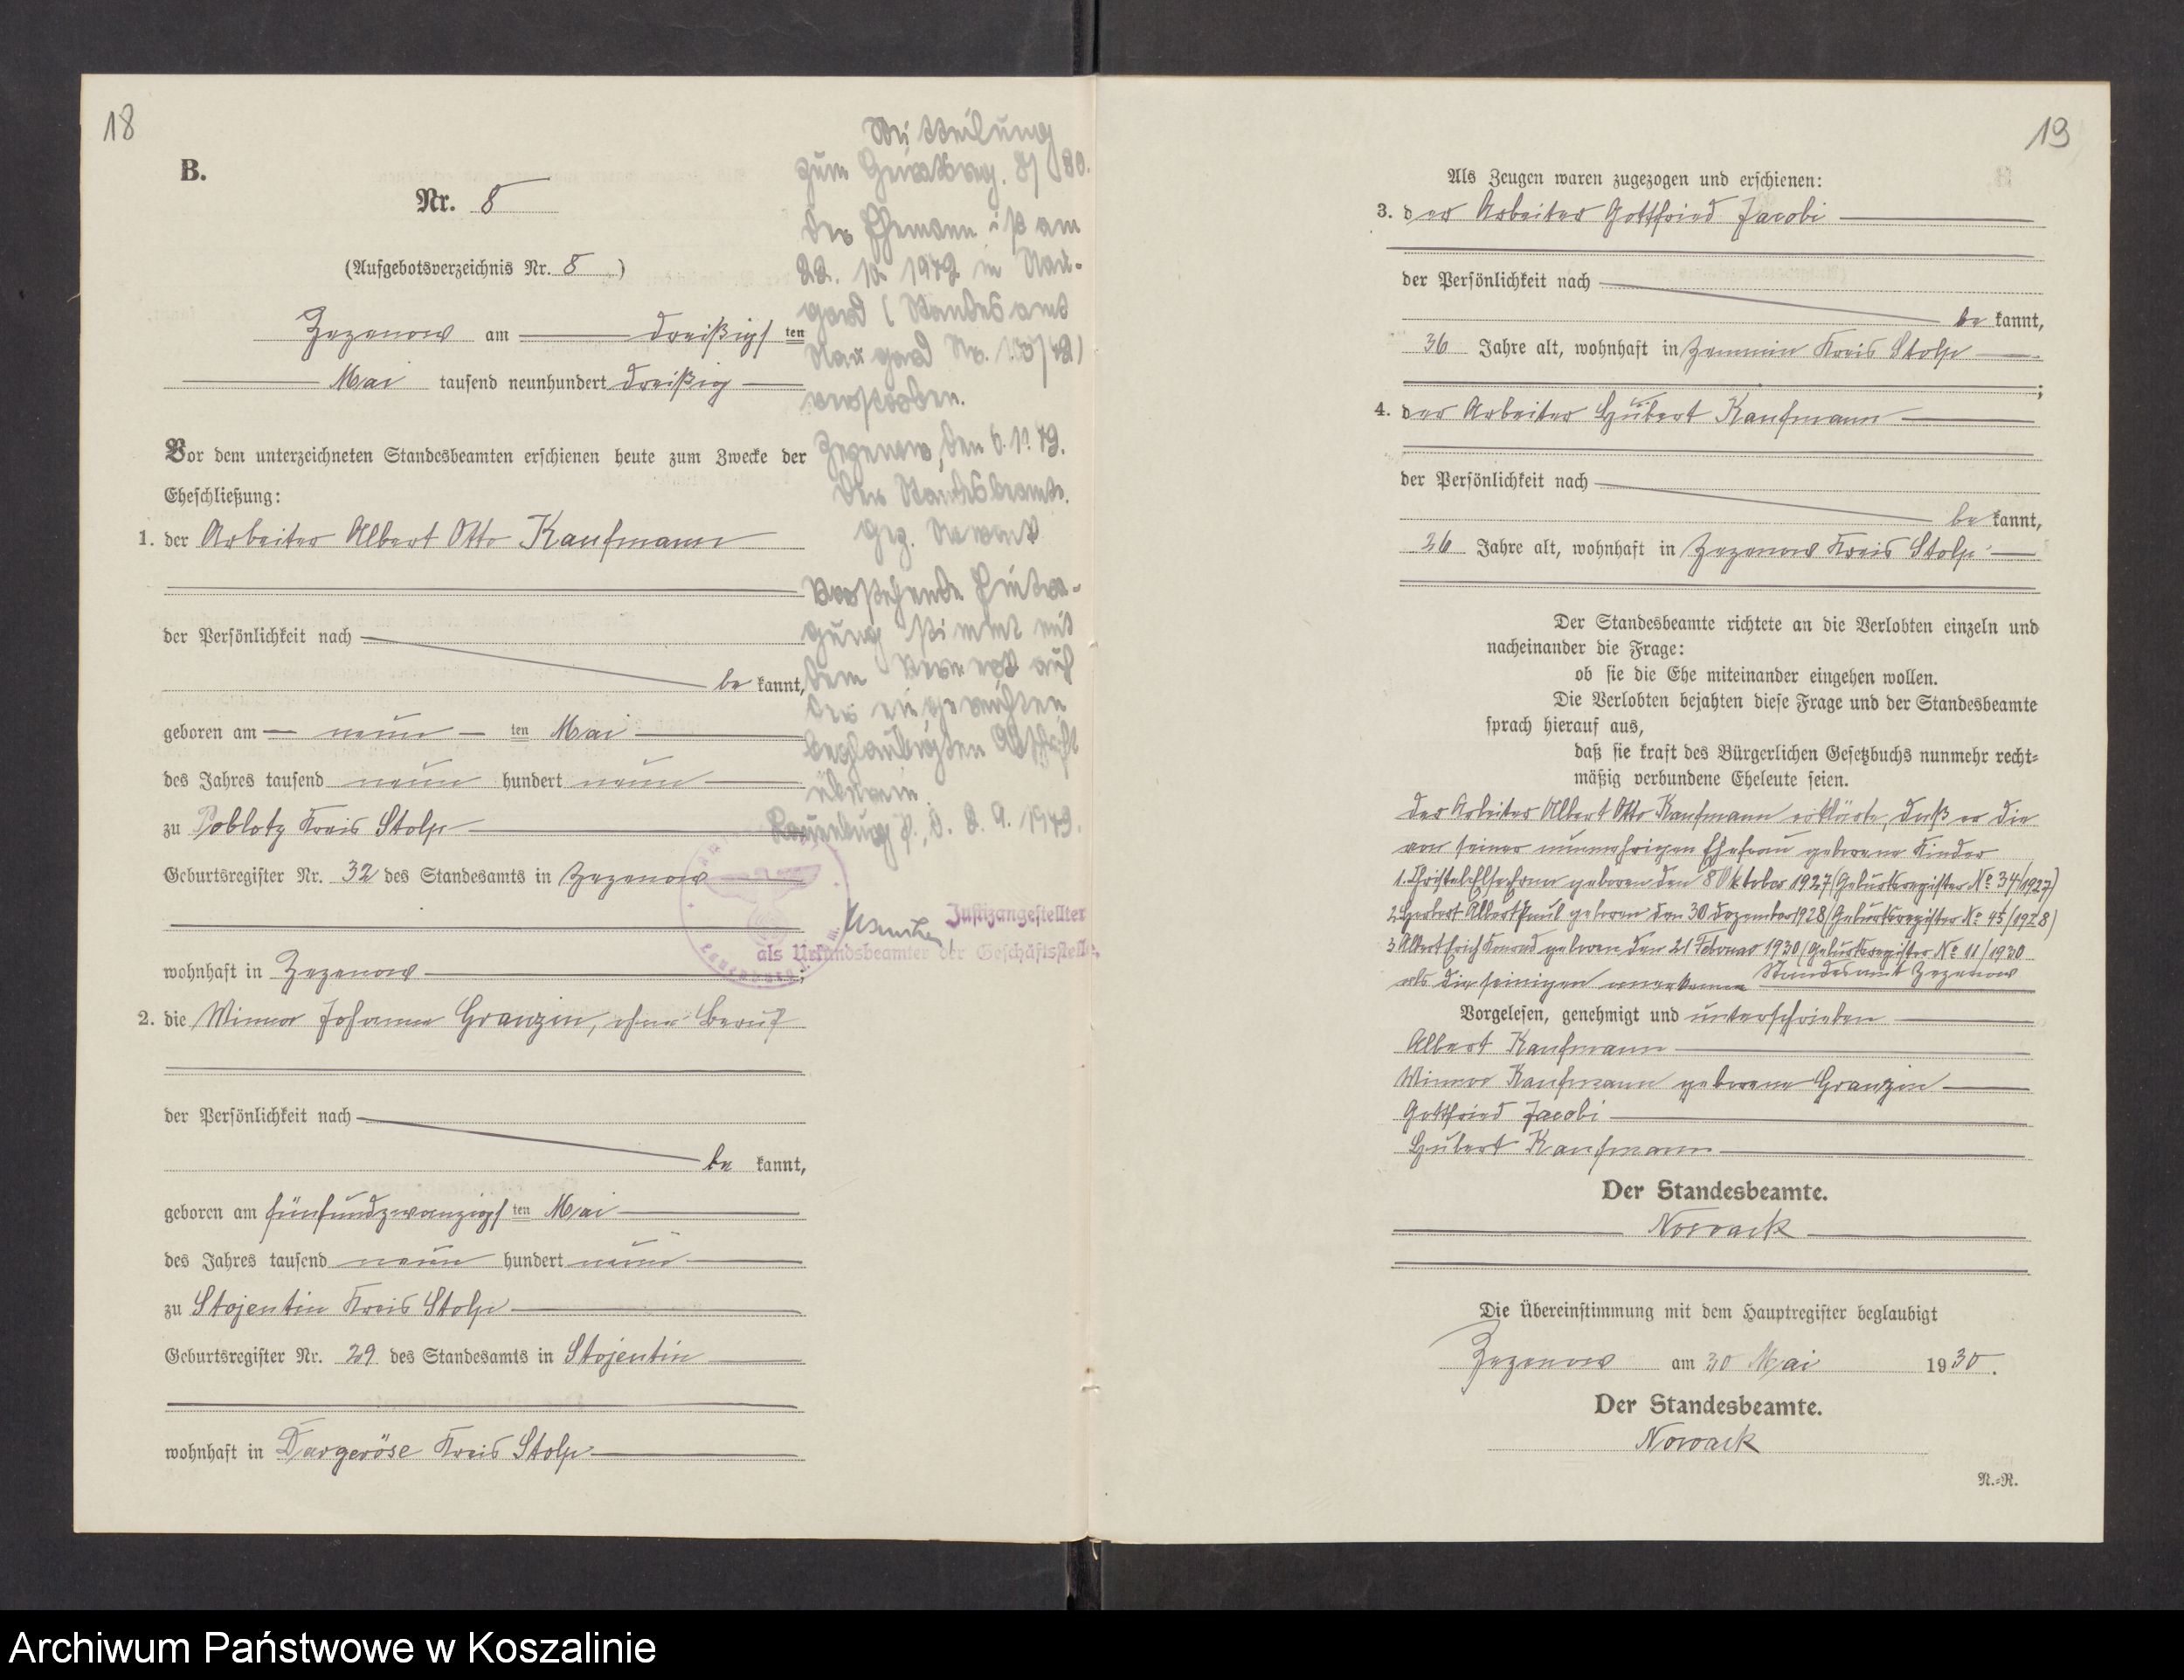 18
B.
Nr. 8
(Aufgebotsverzeichnis Nr. 8)
Zezenow am dreißigsten
Mai tausend neunhundert dreißig
Vor dem unterzeichneten Standesbeamten erschienen heute zum Zwecke der
Eheschließung:
1. der Arbeiter Albert Otto Kaufmann
der Persönlichkeit nach
be kannt,
geboren am neun ten Mai
des Jahres tausend neun hundert neun
zu Poblotz Kreis Stolp
Geburtsregister Nr. 32 des Standesamts in Zezenow
wohnhaft in Zezenow;
2. die Johanne Granzin, ohne Beruf
der Persönlichkeit nach
be kannt,
geboren am fünfundzwanzigsten Mai
des Jahres tausend neun hundert neun
zu Stojentin Kreis Stolp
Geburtsregister Nr. 29 des Standesamts in Stojentin
wohnhaft in Dargeröse Kreis Stolp
Mitteilung
zum
Der Ehemann ist am
in Nau-
gard (Standesamt
Naugard Nr.
verstorben.
Zezenow, den
Der Standesbeamte.
gez. Nowack
Vorstehende Eintra-
gung stimmt mit
dem Vermerk auf
der eingereichten
beglaubigten Abschrift
überein.
Lauenburg P., d.
Justizangestellter
als Urkundsbeamter der Geschäftsstelle
19
Als Zeugen waren zugezogen und erschienen:
3. der Arbeiter Gottfried Jacobi
der Persönlichkeit nach
be kannt,
36 Jahre alt, wohnhaft in Zemmin Kreis Stolp
;
4. der Arbeiter Hubert Kaufmann
der Persönlichkeit nach
be kannt,
26 Jahre alt, wohnhaft in Zezenow Kreis Stolp
Der Standesbeamte richtete an die Verlobten einzeln und
nacheinander die Frage:
ob sie die Ehe miteinander eingehen wollen.
Die Verlobten bejahten diese Frage und der Standesbeamte
sprach hierauf aus,
daß sie kraft des Bürgerlichen Gesetzbuchs nunmehr recht-
mäßig verbundene Eheleute seien.
Der Arbeiter Albert Otto Kaufmann erklärte, daß er die
von seiner nunmehrigen Ehefrau geborene Kinder
1. geboren den 8 Oktober 1927 (Geburtsregister No 34/1927)
2 Herbert Albert Paul geboren den 30 Dezember 1928 (Geburtsregister No 45/1928)
3 Albert Erich Konrad geboren den 21 Februar 1930 (Geburtsregister No 11/1930
Standesamt Zezenow
als die seinigen anerkenne
Vorgelesen, genehmigt und unterschrieben
Albert Kaufmann
Kaufmann geborene Granzin
Gottfried Jacobi
Hubert Kaufmann
Der Standesbeamte.
Nowack
Die Übereinstimmung mit dem Hauptregister beglaubigt
Zezenow am 30 Mai 1930.
Der Standesbeamte.
Nowack
N.-R.
Archiwum Państwowe w Koszalinie